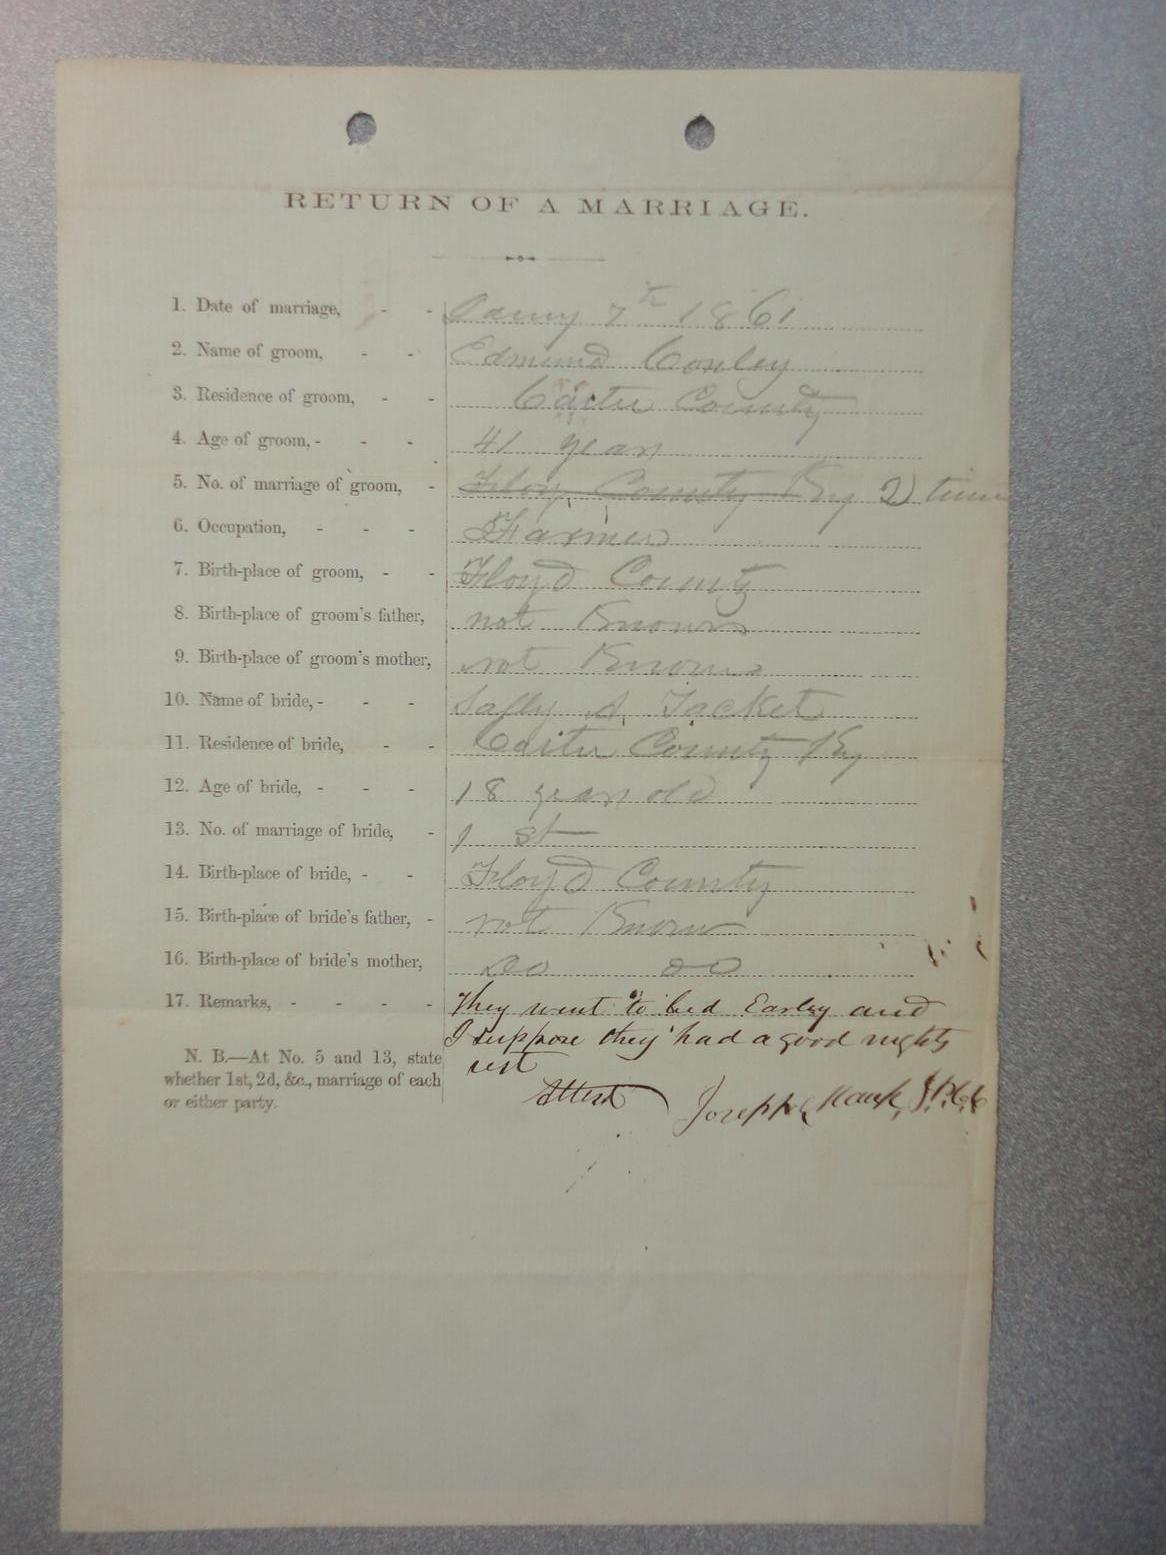 RETURN OF A MARRIAGE.
1. Date of marriage, - - 7th 1861
2. Name of groom, - - Edmund Conley
3. Residence of groom, - - Carter County
4. Age of groom, - - - 41 years
5. No. of marriage of groom, - Floy County Ky 2) time
6. Occupation, - - - Farmer
7. Birth-place of groom, - - Floyd County
8. Birth-place of groom's father, not Known
9. Birth-place of groom's mother, not Known
10. Name of bride, - - - Sally A. Tacket
11. Residence of bride, - - Carter County Ky
12. Age of bride, - - - 18 years old
13. No. of marriage of bride, - 1 st
14. Birth-place of bride, - - Floyd County
15. Birth-place of bride's father, - not Known
16. Birth-place of bride's mother, Do Do
17. Remarks, - - - - They went to bed Earley and
I suppose they had a good nights
rest
N. B.—At No. 5 and 13, state
whether 1st, 2d, &c., marriage of each
or either party.
Attest Joseph